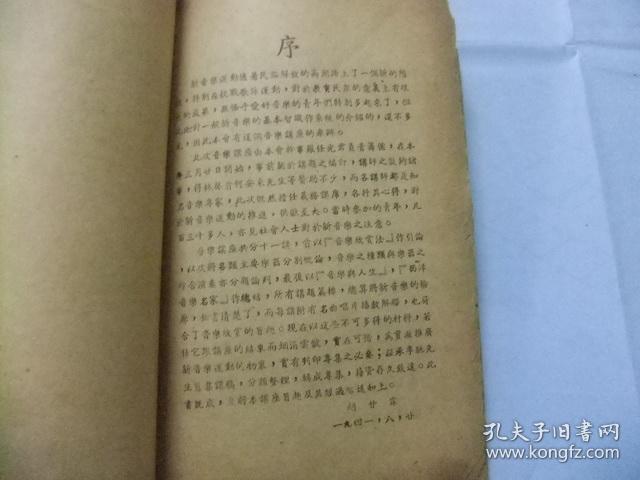 序
新音樂運動隨着民族解放的高潮踏上了一個新的階
段，特別是抗戰歌詠運動，對於教育民衆的意義上有很
的成果，無怪乎愛好音樂的青年們特別多起來了，但
對一般新音樂的基本智識作系統的介紹的，還不多
，因此本會有這個音樂講座的舉辦。
此次音樂講座由本會幹事羅任先君負責籌備，在本
年三月廿日開始，事前關於講題之編訂，講師之敦請諸
，得林聲翕何安東先生等贊助不少，而各講師都是知
名音樂專家，此次慨然擔任義務講席，各抒其心得，對
於新音樂運動的推進，供獻至大。當時參加的青年，凡
百三十多人，亦見社會人士對於新音樂之注意。
音樂講座共分十一講，首以「音樂欣賞法」作引論
，以次將各類主要樂器分別概論，音樂之種類與樂器之
綜合演奏亦分題論列，最後以「音樂與人生」，「西洋
音樂名家」作總結，所有講題氣棟，總算將新音樂的輪
廓，勾畫清楚了，而每講附有名曲唱片播放解釋，也符
合了音樂欣賞的旨趣。現在以這些不可多得的材料，若
任它跟講座的結束而烟消雲散，實在可惜，為貫通推廣
新音樂運動的初衷，實有刊印專集之必要；茲承李馳先
生蒐集講稿，分類整理，編成專集，藉資存久致遠。此
書既成，爰將本講座旨趣及其經過略述如上。
一九四一，八，廿
孔夫子旧书网
www.kongfz.com